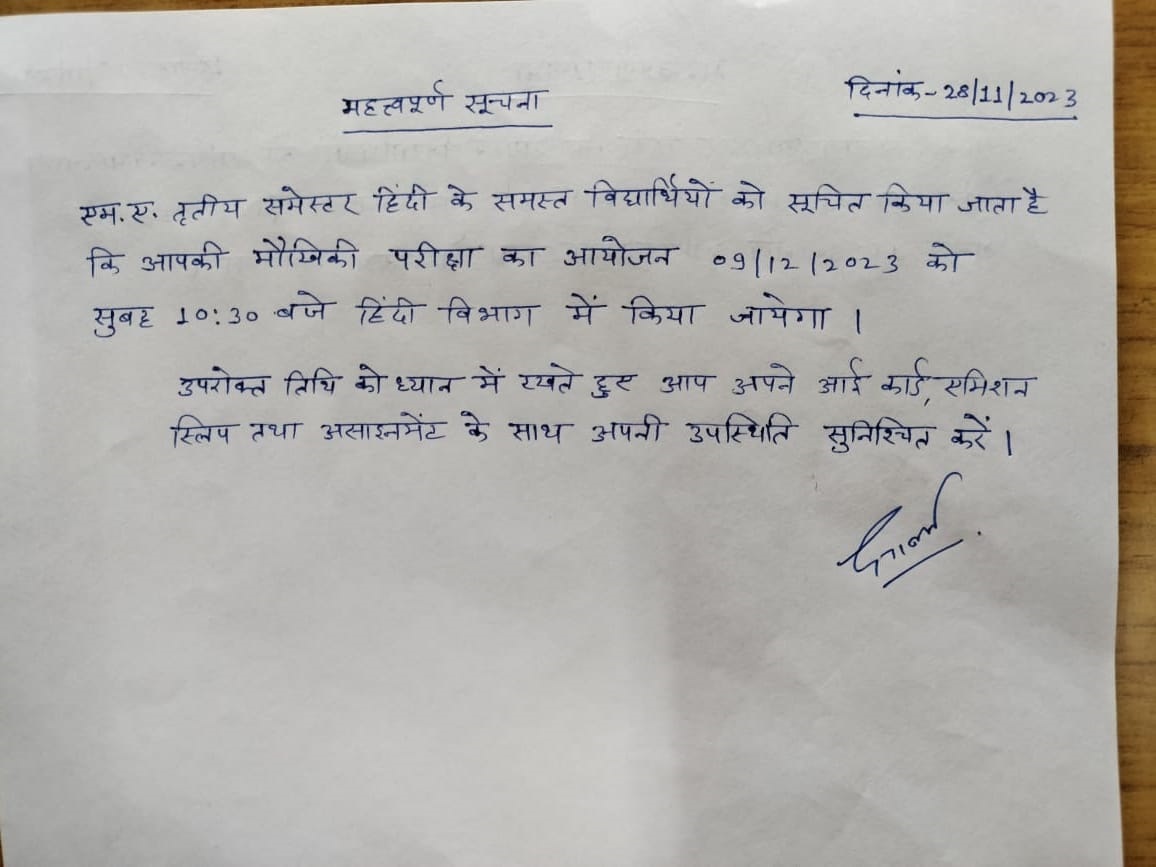 महत्त्वपूर्ण सूचना
दिनांक - 28/11/2023
एम.ए. तृतीय समेस्टर हिंदी के समस्त विद्यार्थियों को सूचित किया जाता है
कि आपकी मौखिकी परीक्षा का आयोजन 09/12/2023 को
सुबह 10:30 बजे हिंदी विभाग में किया जायेगा ।
उपरोक्त तिथि को ध्यान में रखते हुए आप अपने आई कार्ड, एमिशन
स्लिप तथा असाइनमेंट के साथ अपनी उपस्थिति सुनिश्चित करें ।